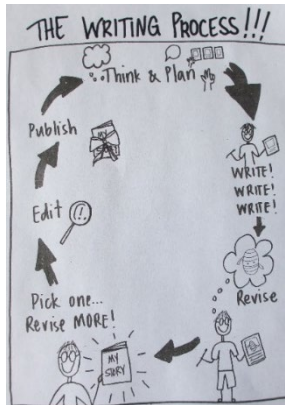 THE WRITING PROCESS!!!
Think & Plan
WRITE!
WRITE!
WRITE!
Revise
MY
STORY
Pick one...
Revise MORE!
Edit
Publish